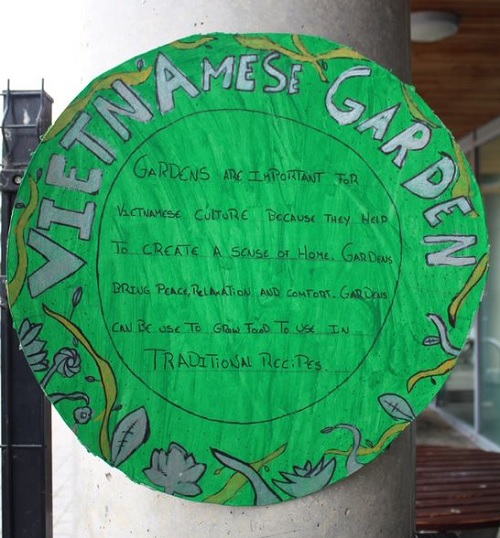 VIETNAMESE GARDEN
GARDENS ARE IMPORTANT FOR
VIETNAMESE CULTURE BECAUSE THEY HELP
TO CREATE A SENSE OF HOME. GARDENS
BRING PEACE, RELAXATION AND COMFORT. GARDENS
CAN BE USE TO GROW FOOD TO USE IN
TRADITIONAL RECIPES.